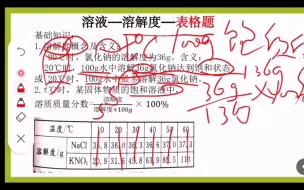 溶液—溶解度—表格题
基础知识
1.溶解度概念及含义:
20℃时,氯化钠的溶解度为36g,含义:
20℃时,100g水中溶解36g氯化钠达到饱和状态
或20℃时,100g水中最多溶解36g氯化钠
2.t℃时,某固体物质的饱和溶液中,
溶质质量分数= 溶解度/溶解度+100g ×100%
温度/℃ 10 20 30 40 50 60
溶解度/g NaCl 35.8 36.0 36.3 36.6 37.0 37.3
KNO₃ 20.9 31.6 45.8 63.9 85.5 110
100g
36g
136